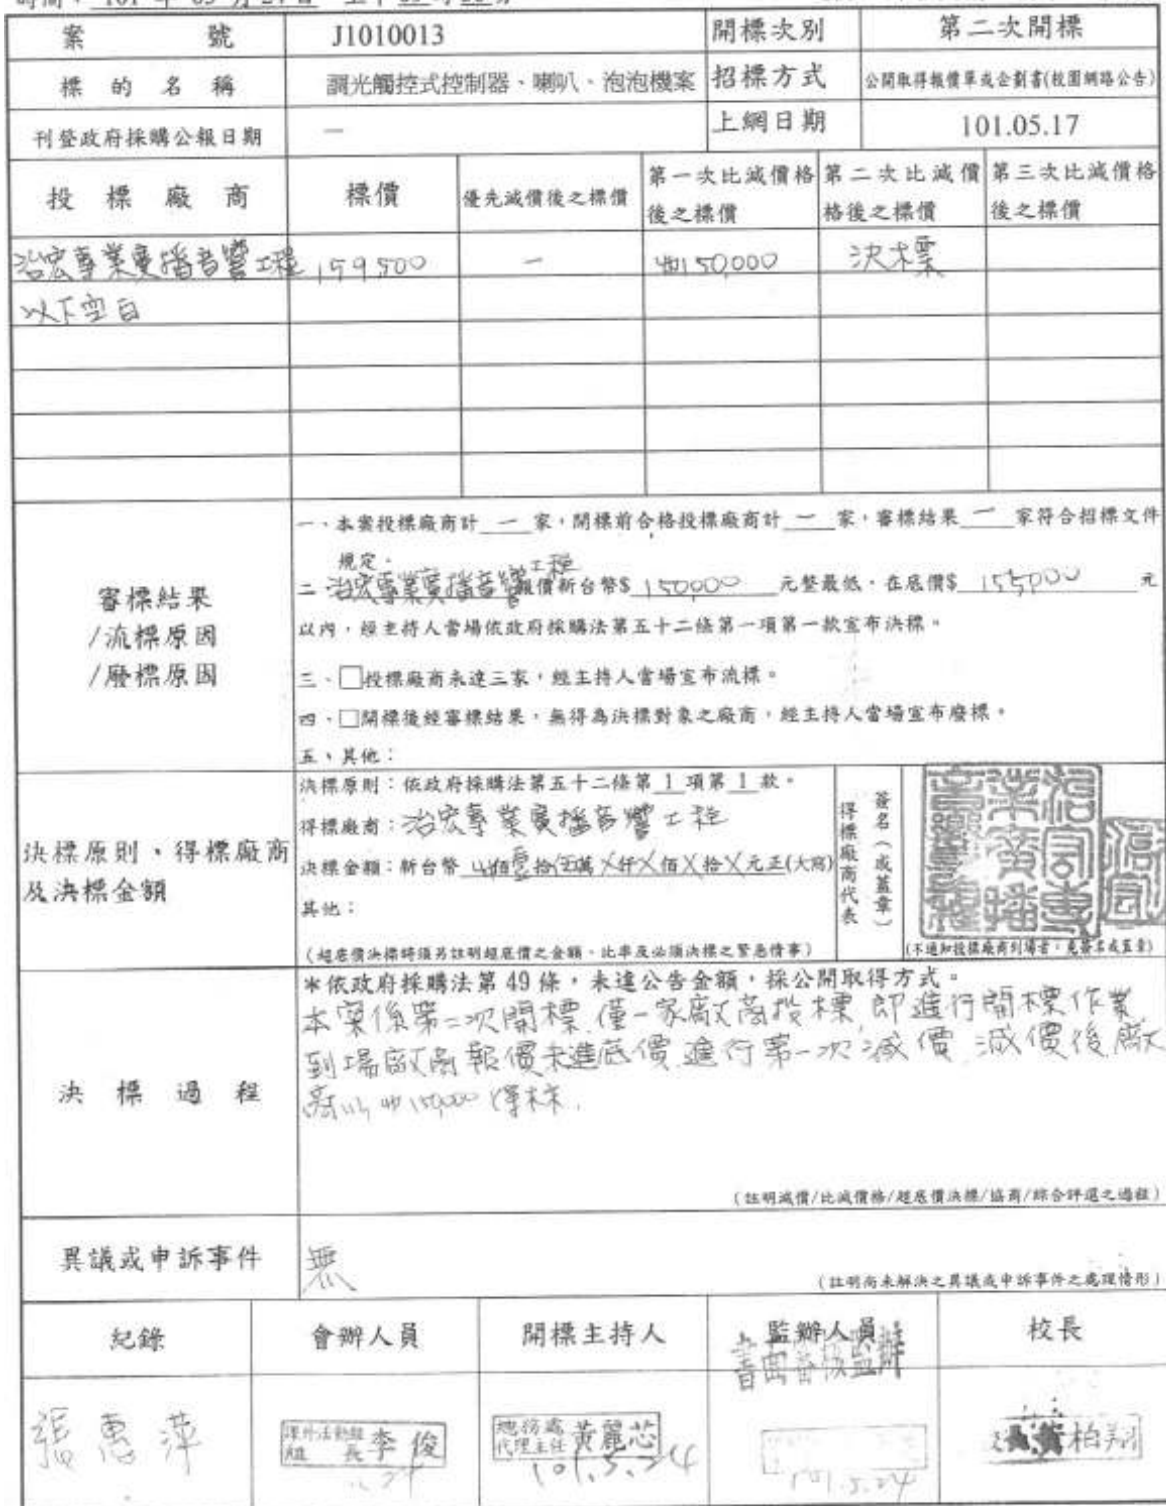 案 號 J1010013 開標次別 第二次開標
標 的 名 稱 調光觸控式控制器、喇叭、泡泡機案 招標方式 公開取得報價單或企劃書(校園網路公告)
刊登政府採購公報日期 — 上網日期 101.05.17
投 標 廠 商 標價 優先減價後之標價 第一次比減價格後之標價 第二次比減價格後之標價 第三次比減價格後之標價
治宏專業廣播音響工程 159,500 — 150,000 決標
以下空白
審標結果
/流標原因
/廢標原因
一、本案投標廠商計 一 家,開標前合格投標廠商計 一 家,審標結果 一 家符合招標文件
規定。
二 治宏專業廣播音響工程 報價新台幣$ 150,000 元整最低,在底價$ 155,000 元
以內,經主持人當場依政府採購法第五十二條第一項第一款宣布決標。
三、□投標廠商未達三家,經主持人當場宣布流標。
四、□開標後經審標結果,無得為決標對象之廠商,經主持人當場宣布廢標。
五、其他:
決標原則、得標廠商
及決標金額
決標原則:依政府採購法第五十二條第 1 項第 1 款。
得標廠商:治宏專業廣播音響工程
決標金額:新台幣 佰壹拾伍萬X仟X佰X拾X元正(大寫)
其他:
(超底價決標時須另註明超底價之金額、比率及必須決標之緊急情事)
得標廠商代表
簽名(或蓋章)
(不通知投標廠商到場者,免簽名或蓋章)
決 標 過 程
*依政府採購法第 49 條,未達公告金額,採公開取得方式。
本案係第二次開標,僅一家廠商投標,即進行開標作業,
到場廠商報價未進底價,進行第一次減價,減價後廠
商以 150,000 得標.
(註明減價/比減價格/超底價決標/協商/綜合評選之過程)
異議或申訴事件 無
(註明尚未解決之異議或申訴事件之處理情形)
紀錄 會辦人員 開標主持人 監辦人員 校長
書面審核監辦
張惠萍
課外活動組
組 長 李 俊
總務處
代理主任 黃麗芯
101.5.24
101.5.24
黃柏翔